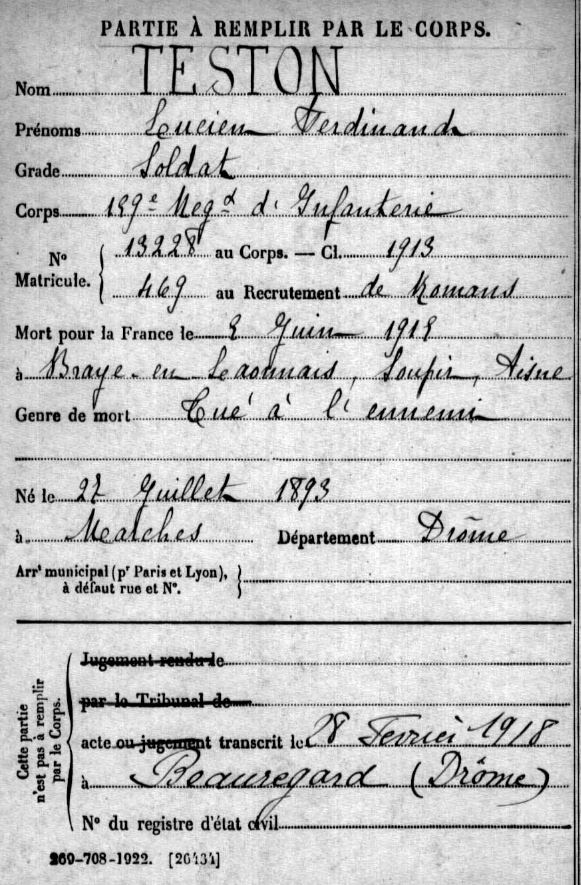 PARTIE À REMPLIR PAR LE CORPS.
Nom TESTON
Prénoms Lucien Ferdinand
Grade Soldat
Corps 159e Regt d'Infanterie
No Matricule. { 13228 au Corps. — Cl. 1913
469 au Recrutement de Romans
Mort pour la France le Juin
à Braye-en Laonnais, Soupir, Aisne
Genre de mort Tué à l'ennemi
Né le 27 Juillet 1893
à Marches Département Drôme
Arrt municipal (pr Paris et Lyon), }
à défaut rue et No.
Cette partie n'est pas à remplir par le Corps.
Jugement rendu le
par le Tribunal de
acte ou jugement transcrit le 28 Février 1918
à Beauregard (Drôme)
No du registre d'état civil
269-708-1922. [26434]